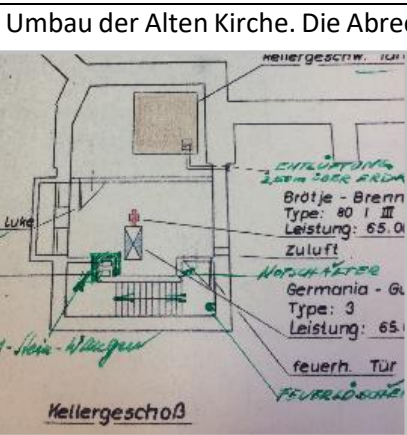 Umbau der Alten Kirche. Die Abrec
Kellergeschw.
ENTLÜFTUNG
2,50m ÜBER ERDR
Brötje - Brenn
Type: 80 I III
Leistung: 65.0
Luke
Zuluft
NOTSCHALTER
Germania - Gu
Type: 3
Leistung: 65.
-Stein-Wangen
feuerh. Tür
FEUERLÖSCHER
Kellergeschoß